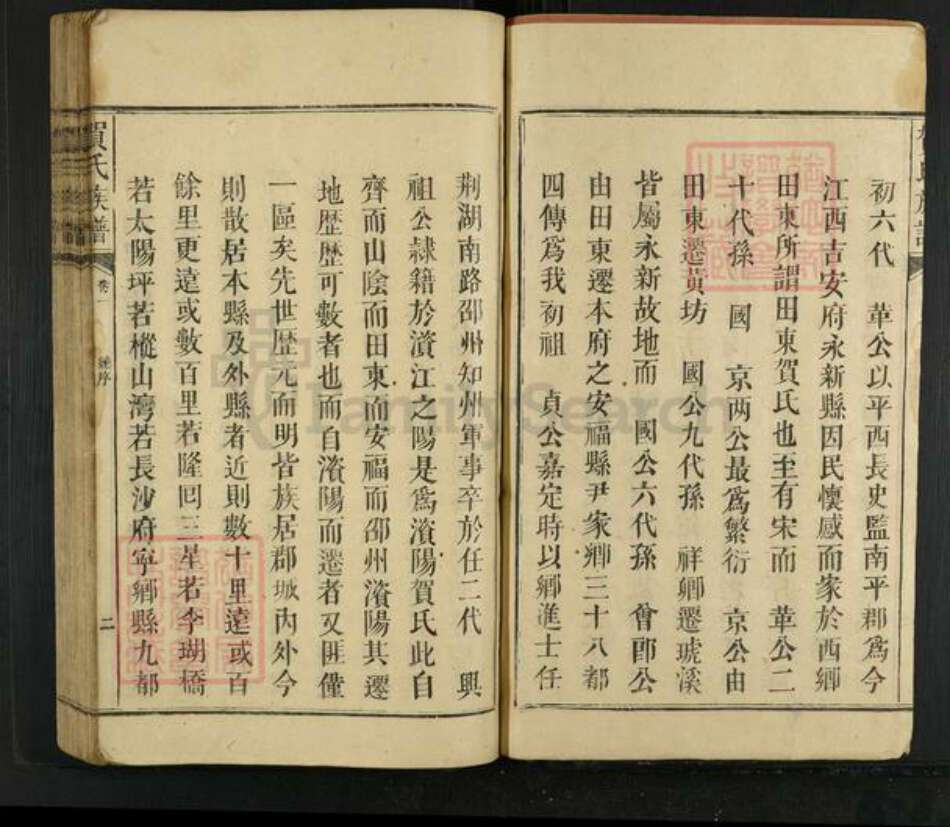 初六代 華公以平西長史監南平郡爲今
江西吉安府永新縣因民懷感而家於西鄉
田東所謂田東賀氏也至有宋而 華公二
十代孫 國 京两公最爲繁衍 京公由
田東遷黃坊 國公九代孫 祥卿遷琥溪
皆屬永新故地而 國公六代孫 曾郎公
由田東遷本府之安福縣尹家鄉三十八都
四傳爲我初祖 貞公嘉定時以鄉進士任
荆湖南路邵州知州軍事卒於任二代 興
祖公隸籍於濱江之陽是爲濱陽賀氏此自
齊而山陰而田東而安福而邵州濱陽其遷
地歴歴可數者也而自濱陽而遷者又匪僅
一區矣先世歴元而明皆族居郡城内外今
則散居本縣及外縣者近則數十里遠或百
餘里更遠或數百里若隆囘三星若李瑚橋
若太陽坪若樅山灣若長沙府寧鄉縣九都
賀氏族譜
卷一
序
二
FamilySearch